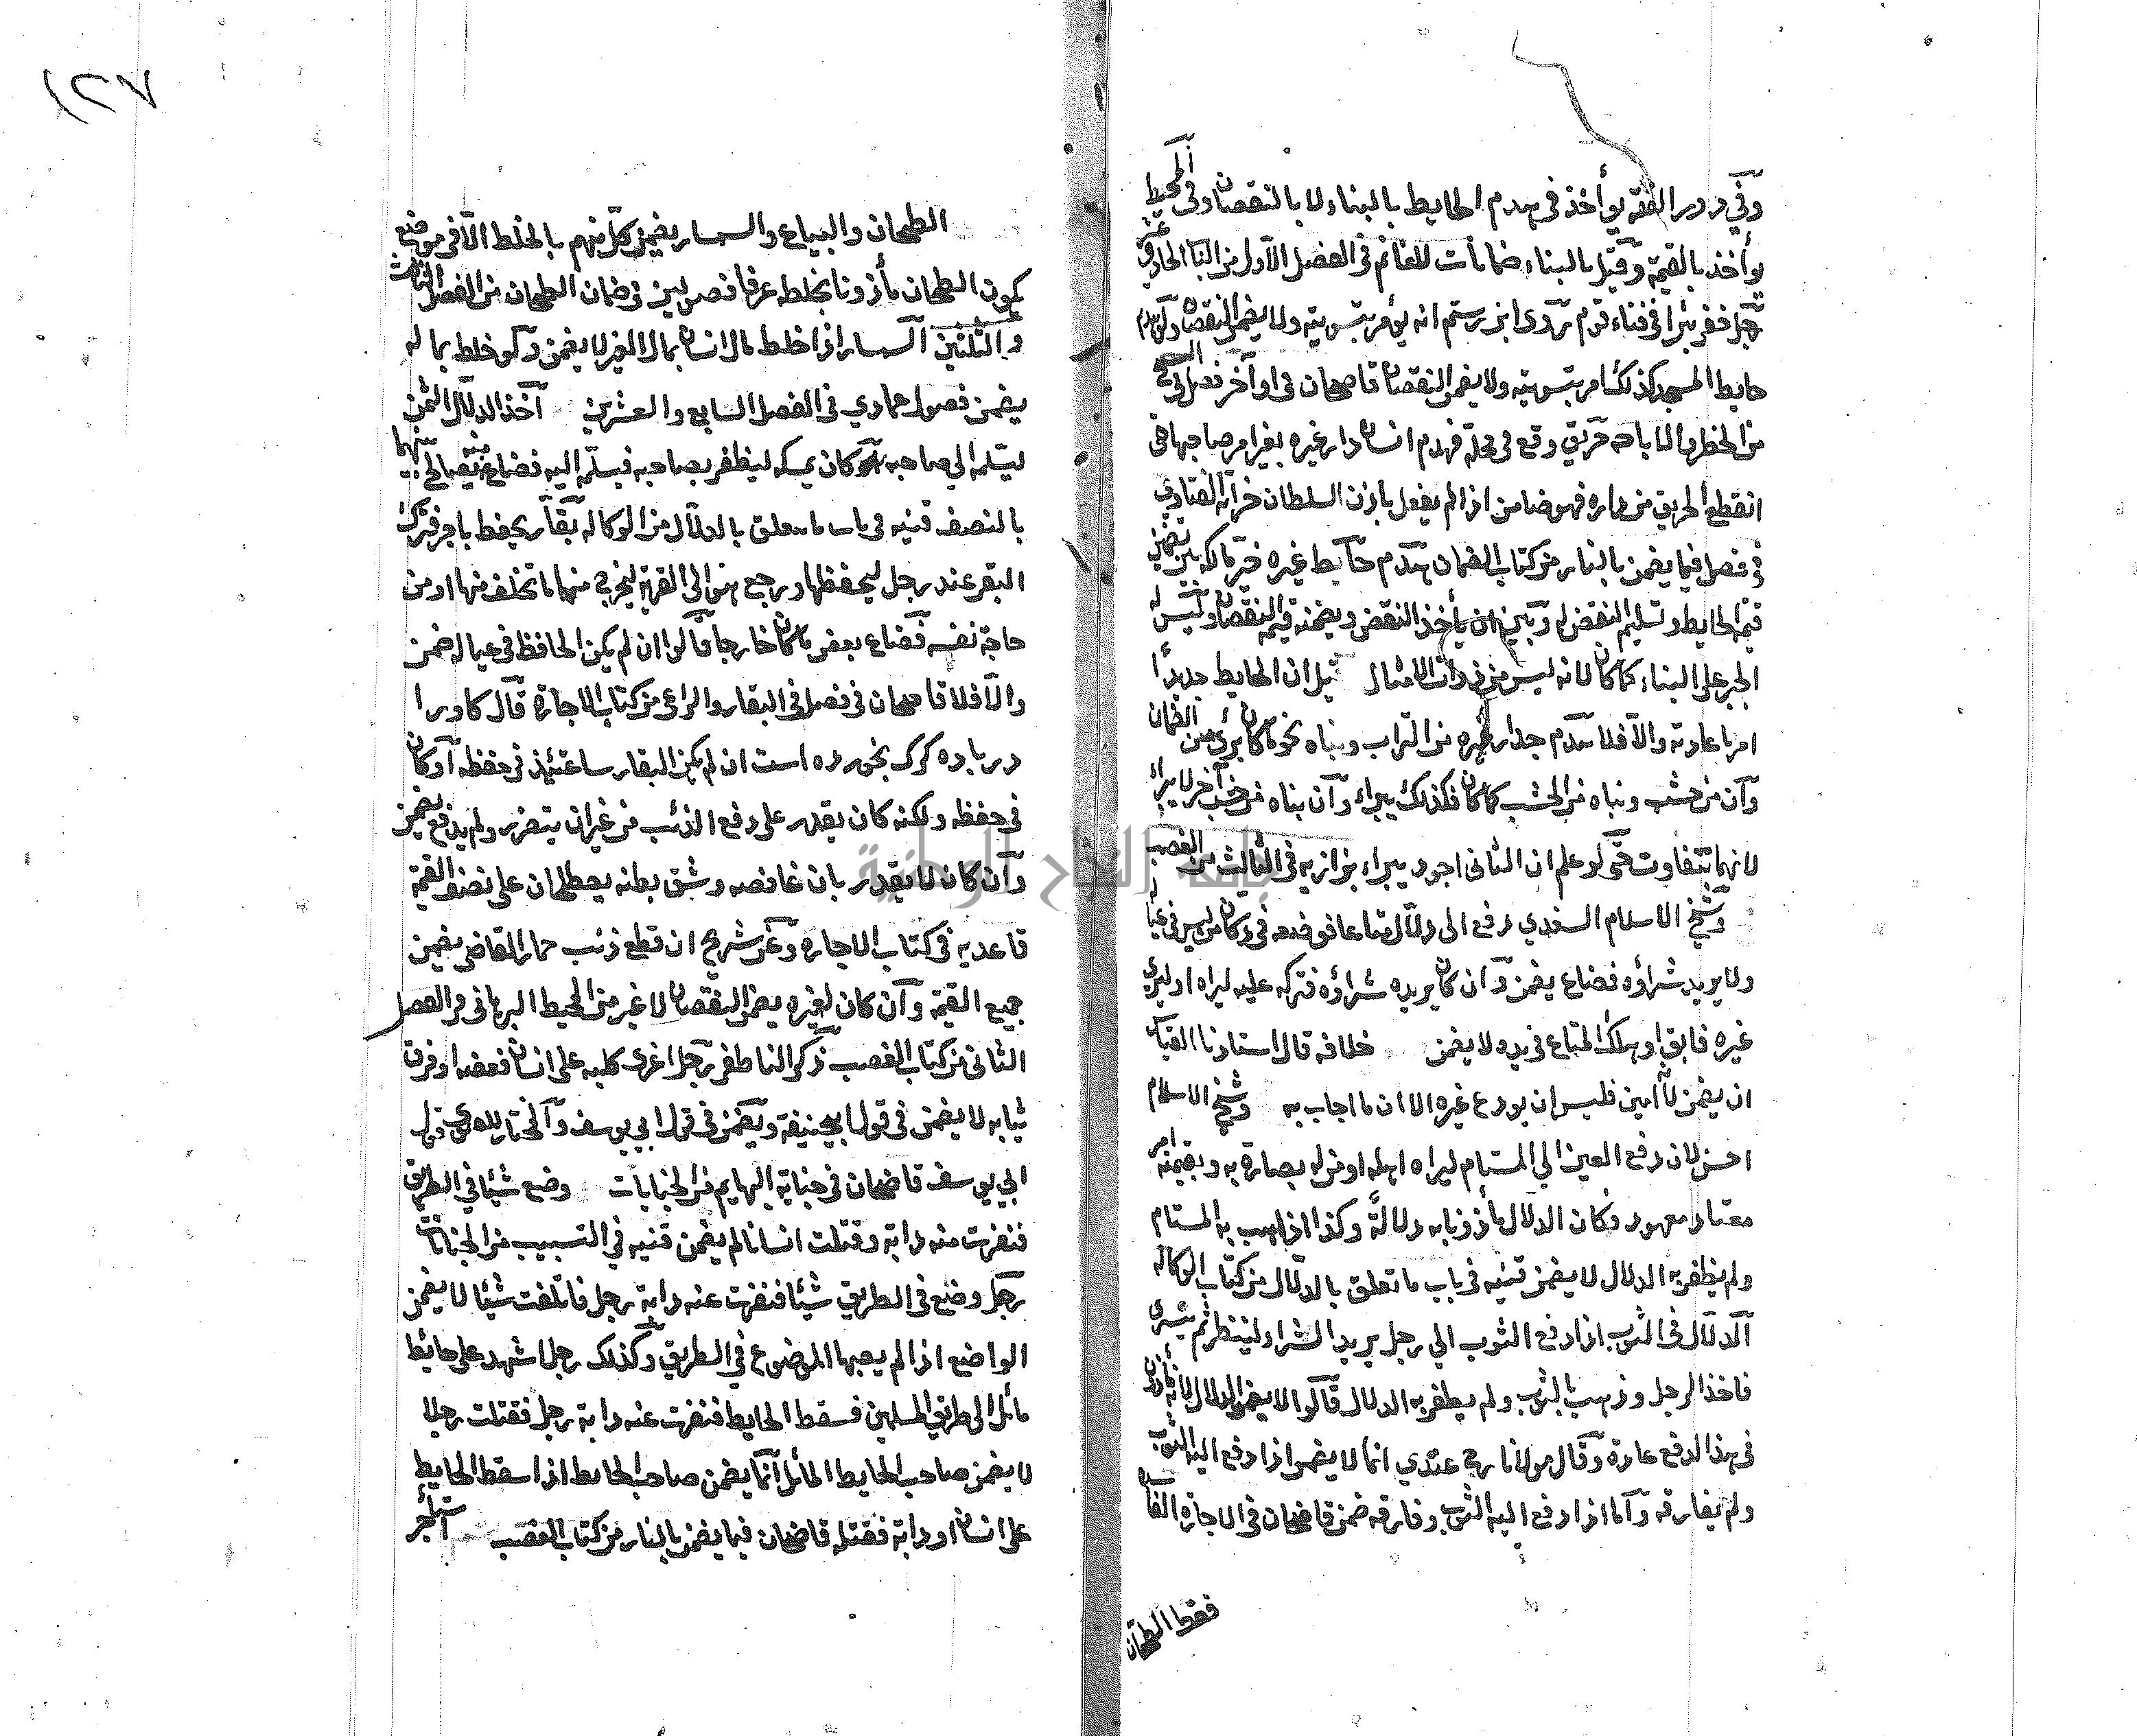 وفي درر الفقه يؤاخذ في هدم الحايط بالبناء لا بالنقصان وفي المحيط
يؤاخذ بالقيمة وقيل بالبناء ضمانات للغانم في الفصل الاول من الباب الحادي عشر
رجل حفر بئرا في فناء قوم روى ابن رستم انه يؤمر بتسويته ولا يضمن النقصان ولو هدم
حايط المسجد كذلك امر بتسويته ولا يضمن النقصان قاضخان في اواخر فصل في
من الحظر والاباحة حريق وقع في محلة فهدم انسان دار غيره بغير امر صاحبها حتى
انقطع الحريق من داره فهو ضامن اذا لم يفعل باذن السلطان خزانة الفتاوي
في فصل فيما يضمن بالنار من كتاب الضمان هدم حايط غيره خير مالكه بين تضمين
قيمة الحايط وتسليم النقض له وبين ان يأخذ النقض ويضمنه قيمة النقصان وليس له
الجبر على البناء كما كان لانه ليس من ذوات الامثال قيل ان الحايط جديدا
امر باعادته والا فلا هدم جدار غيره من التراب وبناه نحو ما كان برئ من الضمان
وان من خشب وبناه من الخشب كما كان فكذلك يبراء وان بناه من خشب آخر لا يبراء
لانها تتفاوت حتى لو علم ان الثاني اجود يبراء بزازيه في الثالث من الغصب
وشيخ الاسلام السغدي دفع الى دلال متاعا فوضعه في دكان من ليس في عياله
ولا يريد شراؤه فضاع يضمن وان كان يريده شراؤه فتركه عليه ليراه او ليري
غيره فابق او هلك المتاع في يده ولا يضمن خلافه قال استادنا القياس
ان يضمن لانه امين فليس ان يودع غيره الا ان ما اجاب به وشيخ الاسلام
احسن لان دفع العين الي المستام ليراه اهله او من له بصارة به وبقيمته امر
معتاد معهود وكان الدلال مأذونا به دلالة وكذا اذا ذهب به المستام
ولم يظفر به الدلال لا يضمن قنيه في باب ما تعلق بالدلال من كتاب الوكاله
الدلال في الثوب اذا دفع الثوب الي رجل يريد الشراء لينظر ثم يشتري
فاخذ الرجل وذهب بالثوب ولم يظفر به الدلال قالوا لا يضمن الدلال لانه مأذون
في هذا الدفع عادة وقال مولانا رح عندي انما لا يضمن اذا دفع اليه الثوب
ولم يفارقه واما اذا دفع اليه الثوب وفارقه ضمن قاضخان في الاجارة الفاسدة
فقط الطحان
١٢٧
الطحان والبياع والسمسار يضمن كل منهم بالخلط الا في موضع
يكون الطحان مأذونا بخلطه عرفا فصولين في ضمان الطحان من الفصل الثالث
والثلثين السمسار اذا خلط مال انسان بمال الغير لا يضمن ولو خلط بماله
يضمن فصول عمادي في الفصل السابع والعشرين اخذ الدلال الثمن
ليسلمه الي صاحبه او كان يمسكه ليظفر بصاحبه فيسلمه اليه فضاع منه يصالح بينهما
بالنصف قنيه في باب ما يتعلق بالدلال من الوكاله بقار يحفظ باجر فترك
البقر عند رجل ليحفظها ورجع هو الى القرية ليخرج منها ما تخلف منها او من
حاجة نفسه فضاع بعض ما كان خارجا قالوا ان لم يكن الحافظ في عياله ضمن
والا فلا قاضخان في فصل في البقار والراعي من كتاب الاجارة قال كاو را
در باده كرك بخورده است ان لم يكن البقار ساعتئذ في حفظه او كان
في حفظه ولكنه كان يقدر على دفع الذئب من غير ان يتضرر ولم يدفع يضمن
وان كان لا يقدر بان غافصه وشق بطنه يصطلحان على نصف القيمة
قاعديه في كتاب الاجاره وعن شريح ان قطع ذنب حمار القاضي يضمن
جميع القيمة وان كان لغيره يضمن النقصان لا غير من المحيط البرهاني في الفصل
الثاني من كتاب الغصب ذكر الناطفي رجل اغرى كلبه على انسان فعضه او فرق
ثيابه لا يضمن في قول ابي حنيفة ويضمن في قول ابي يوسف والمختار للفتوى قول
ابي يوسف قاضخان في جناية البهايم من الجنايات وضع شيئا في الطريق
فنفرت منه دابة وقتلت انسانا لم يضمن قنيه في التسبيب من الجنايات
رجل وضع في الطريق شيئا فنفرت عنه دابة رجل فاتلفت شيئا لا يضمن
الواضع اذا لم يصبها الموضوع في الطريق وكذلك رجل اشهد على حائط
مائل الى طريق المسلمين فسقط الحايط فنفرت عنه دابة رجل فقتلت رجلا
لا يضمن صاحب الحايط المائل انما يضمن صاحب الحايط اذا سقط الحايط
على انسان او دابة فقتله قاضخان فيما يضمن بالنار من كتاب الغصب استأجر
جامعة النجاح الوطنية